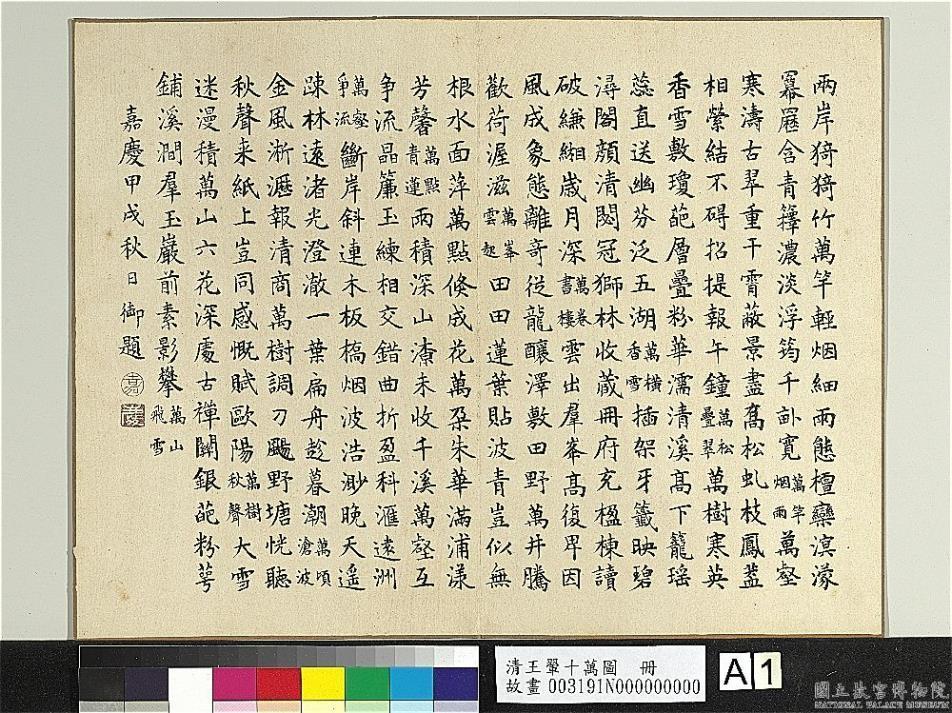 兩岸猗猗竹萬竿輕烟細雨態檀欒溟濛
羃䍥含青籜濃淡浮筠千畝寬萬竿烟雨萬壑
寒濤古翠重干霄蔽景盡喬松虬枝鳳葢
相縈結不碍招提報午鐘萬松疊翠萬樹寒英
香雪敷瓊葩層疊粉華濡清溪高下籠瑶
蕊直送幽芬泛五湖萬橫香雪插架牙籤映碧
潯閣顏清閟冠獅林收蔵冊府充楹棟讀
破縑緗歲月深萬卷書樓雲出羣峯高復畀因
風成象態離奇從龍釀澤敷田野萬井騰
歡荷渥滋萬峯雲起田田蓮葉貼波青豈似無
根水面萍萬點倐成花萬朶朱華滿浦漾
芳馨萬點青蓮兩積深山潦未收千溪萬壑互
争流晶簾玉練相交錯曲折盈科滙遠洲
萬壑爭流斷岸斜連木板橋烟波浩渺晚天遥
踈林遠渚光澄澈一葉扁舟趁暮潮萬頃滄波
金風淅瀝報清商萬樹調刀颺野塘恍聽
秋聲来紙上豈同感慨賦歐陽萬樹秋聲大雪
迷漫積萬山六花深處古禪關銀葩粉萼
鋪溪澗羣玉巖前素影攀萬山飛雪
嘉慶甲戌秋日御題
嘉
慶
清王翬十萬圖 冊
故畫 003191N000000000
A1
國立故宮博物院
NATIONAL PALACE MUSEUM